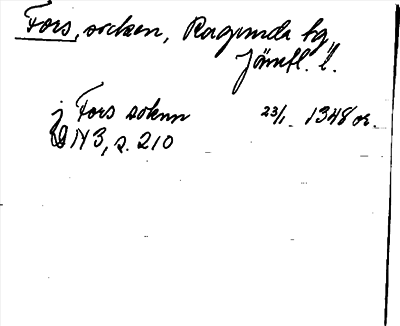 Fors, socken, Ragunda tg
Jämtl. l.
j Fors soknn 23/1. 1348 or.
N3, s. 210